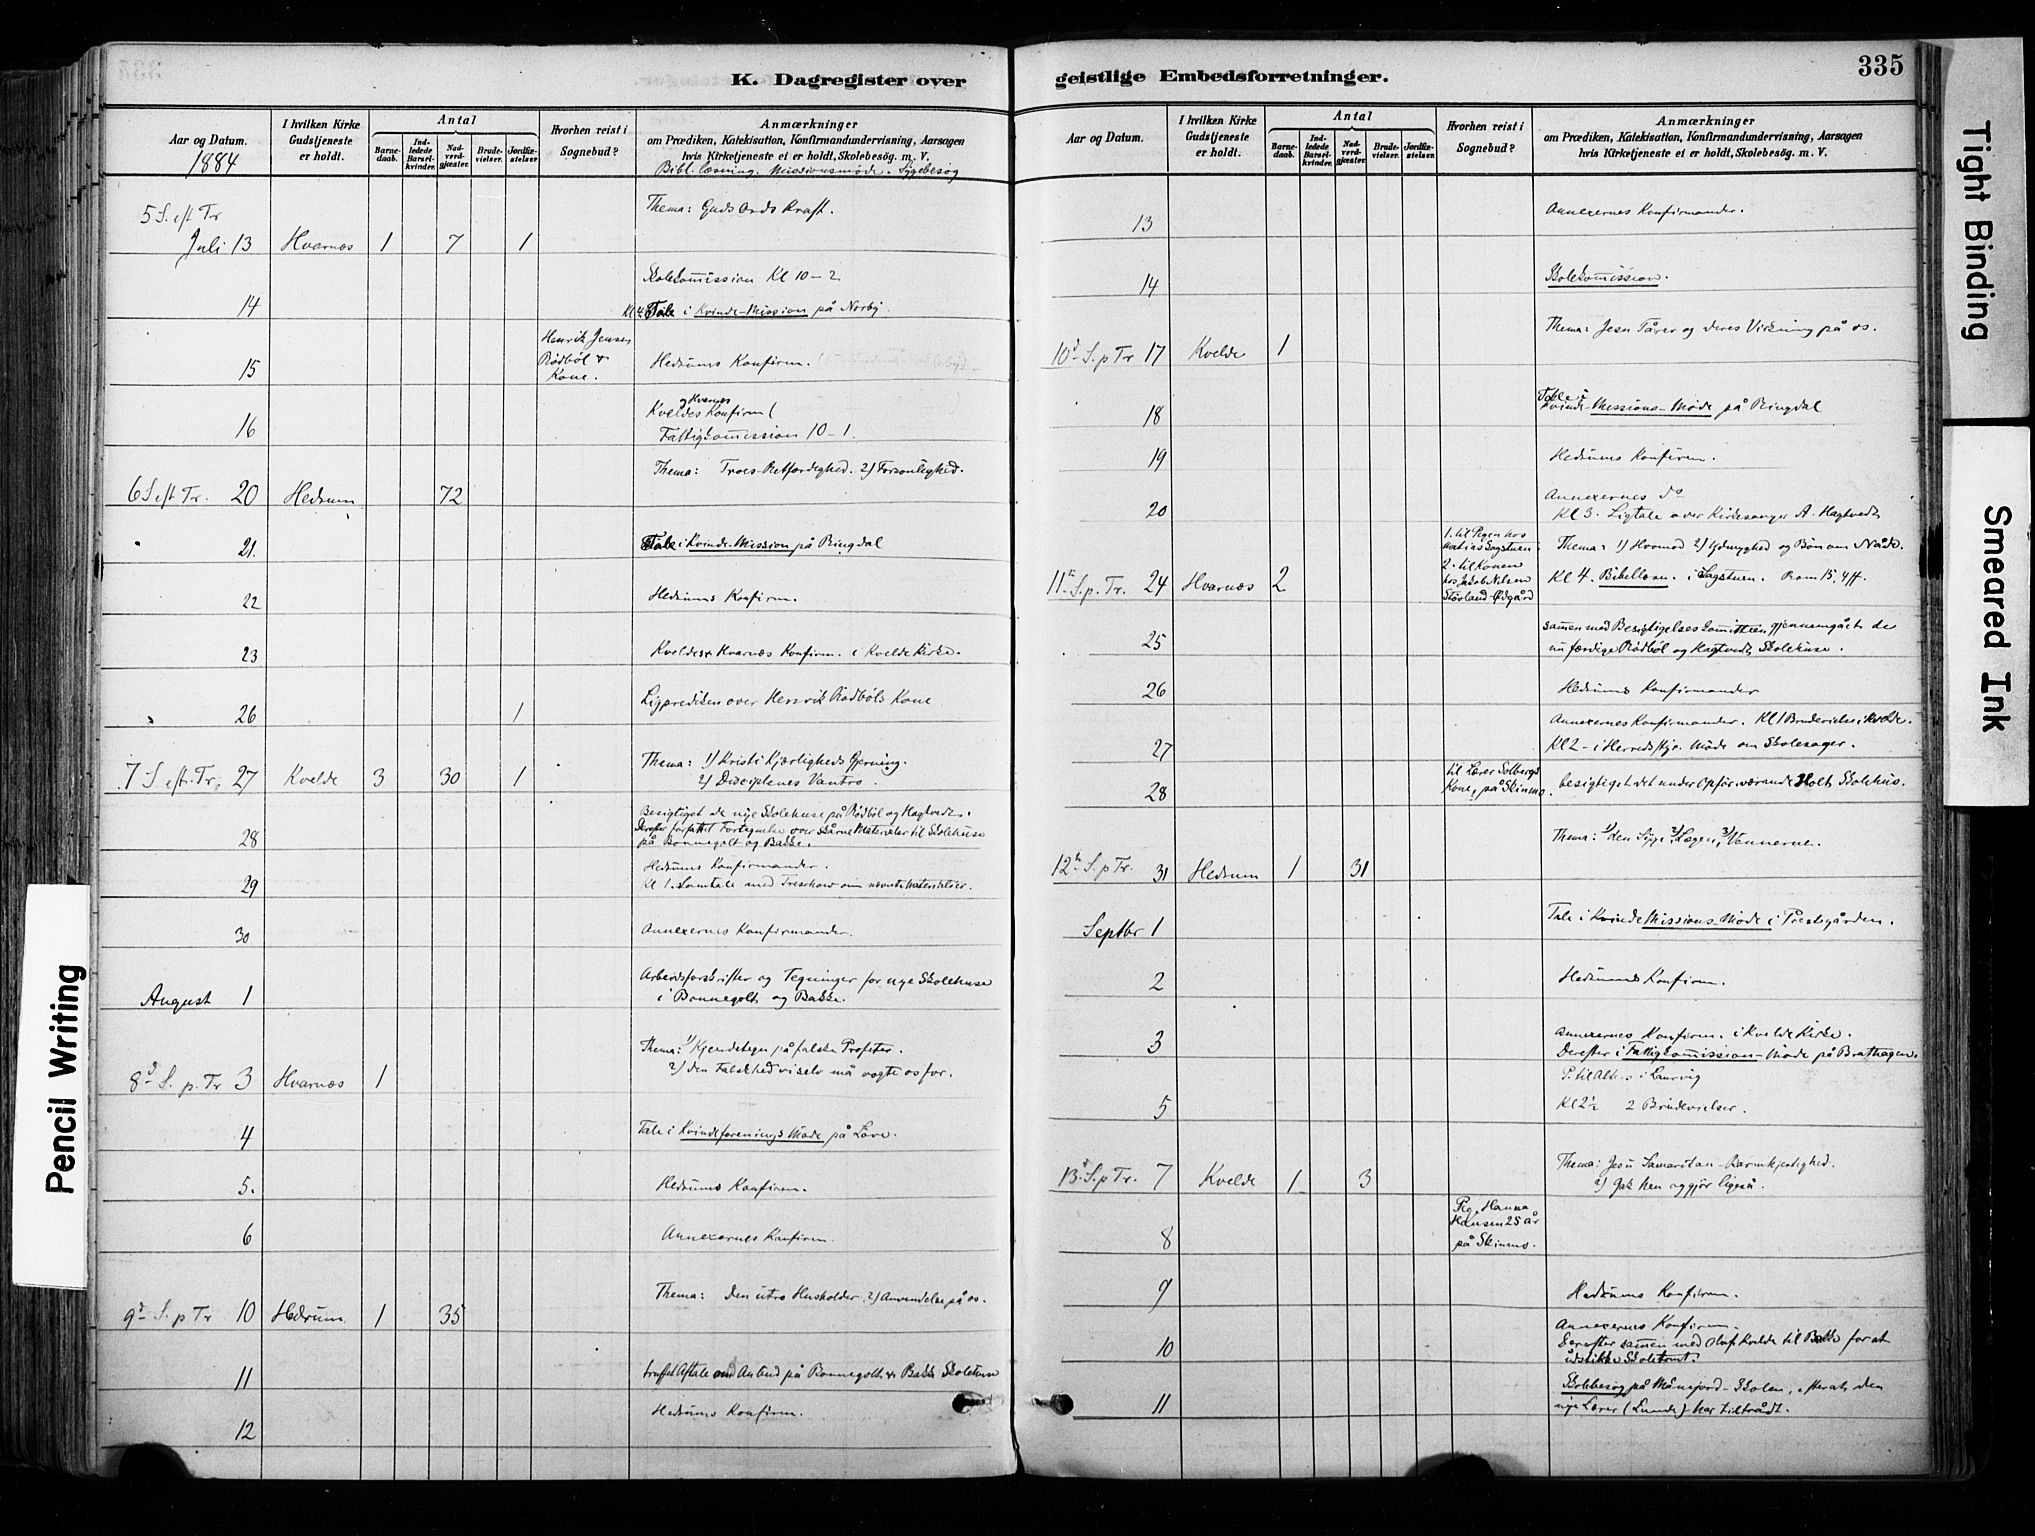 K. Dagregister over
Aar og Datum.
1884
I hvilken Kirke Gudstjeneste er holdt.
Antal
Barne-daab.
Ind-ledede Barsel-kvinder.
Nad-verd-gjester.
Brude-vielser.
Jordfæ-stelser
Hvorhen reist i Sognebud?
Anmærkninger
om Prædiken, Katekisation, Konfirmandundervisning, Aarsagen
hvis Kirketjeneste ei er holdt, Skolebesög. m. V.
Bibl. læsning. Missionsmøde. Sygebesøg
5 S. eft Tr
Thema: Guds Ords Kraft.
Juli 13 Hvarnæs 1 7 1
Skolekomission Kl 10-2
14 Kl 4 Tale i Kvinde-Mission på Norby.
Henrik Jensen
Rödböl &
Kone.
15 Hedrums Konfirm.
og Hvarnes
Kveldes Konfirm
16 Fattigkomission 10-1.
Thema: Troes Retfærdighed. 2) Forsonlighed.
6 S eft Tr. 20 Hedrum 72
21. Tale i Kvinde-Mission på Ringdal
22 Hedrums Konfirm.
23 Kveldes & Hvarnæs Konfirm. i Kvelde Kirke.
26 1 Ligprediken over Henrik Rødbøls Kone
Thema: 1) Kristi Kjærligheds Gjerning.
7 S. eft. Tr. 27 Kvelde 3 30 1 2) Disciplenes Vantro.
Besigtiget de nye Skolehuse på Rødböl og Hagtvedt.
Derefter forfattet Fortegnelse over Materialer til Skolehuse
28 på Bonnegolt og Bakke.
Hedrums Konfirmander.
29 Kl 1. Samtale med Treschow om nævnte Materialier.
30 Annexernes Konfirmander.
Arbeidsforskrifter og Tegninger for nye Skolehuse
August 1 i Bonnegolt og Bakke.
Thema: 1) Kjendetegn på falske Profeter.
8d S. p. Tr 3 Hvarnæs 1 2) den Falskhed vi selv må vogte os for.
4 Tale i Kvindeforenings Møde på Løve.
5. Hedrums Konfirm.
6 Annexernes Konfirm.
Thema: Den utro Husholder. 2) Anvendelse på os.
9d S. p Tr 10 Hedrum 1 35
11 truffet Aftale om Anbud på Bonnegolt & Bakke Skolehuse
12 Hedrums Konfirm.
geistlige Embedsforretninger.
335
Aar og Datum.
I hvilken Kirke Gudstjeneste er holdt.
Antal
Barne-daab.
Ind-ledede Barsel-kvinder
Nad-verd-gjester.
Brude-vielser.
Jordfæ-stelser
Hvorhen reist i Sognebud?
Anmærkninger
om Prædiken, Katekisation, Konfirmandundervisning, Aarsagen
hvis Kirketjeneste ei er holdt, Skolebesög. m. V.
13 Annexernes Konfirmander.
14 Skolekomission.
Thema: Jesu Tårer og deres Virkning på os.
10d S. p Tr 17 Kvelde 1
Tale i
18 Kvinde-Missions-Møde på Ringdal
19 Hedrums Konfirm.
Annexernes do
20 Kl 3. Ligtale over Kirkesanger A. Hagtvedt
1. til Pigen hos
Matias Sagstuen
2. til Konen
hos Jakob Nilsen
Støvland-Ødgård
Thema: 1) Hovmod 2) Ydmyghed og Bøn om Nåde.
11te S. p. Tr. 24 Hvarnæs 2 Kl 4. Bibellæsn. i Sagstuen. Rom 15, 4ff.
samen med Besigtigelseskomitteen gjennemgået de
25 nu færdige Rødböl og Hagtvedt Skolehuse.
26 Hedrums Konfirmander
Annexernes Konfirmander. Kl 1 Brudevielse i Kvelde.
27 Kl 2 - i Herredsstyr. Møde om Skolesager.
til Lærer Solbergs
Kone, på Skinmo
28 besigtiget det under Opför. værende Holt Skolehus.
Thema: 1) den Syge, 2) Lægen, 3) Vennerne.
12te S. p Tr. 31 Hedrum 1 31
Septbr 1 Tale i Kvinde Missions-Møde i Præstegården.
2 Hedrums Konfirm.
Annexernes Konfirm. i Kvelde Kirke.
3 Derefter i Fattigkomission-Møde på Brathagen.
P. til Alt.s i Laurvig
5 Kl 2½ 2 Brudevielser.
Thema: Jesu Samaritan-Barmhjertighed.
13d S. p Tr. 7 Kvelde 1 3 2) Gak hen og gjør ligeså.
Pig. Hanna
Hansen 25 år
8 på Skinmo.
9 Hedrums Konfirm.
Annexernes Konfirm.
10 Derefter samen med Oluf Kvelde til Bakke for at
udstikke Skoletomt.
Skolebesøg på Månejord-Skolen, efterat den
11 nye Lærer (Lunde) har tiltrådt.
Tight Binding
Smeared Ink
Pencil Writing